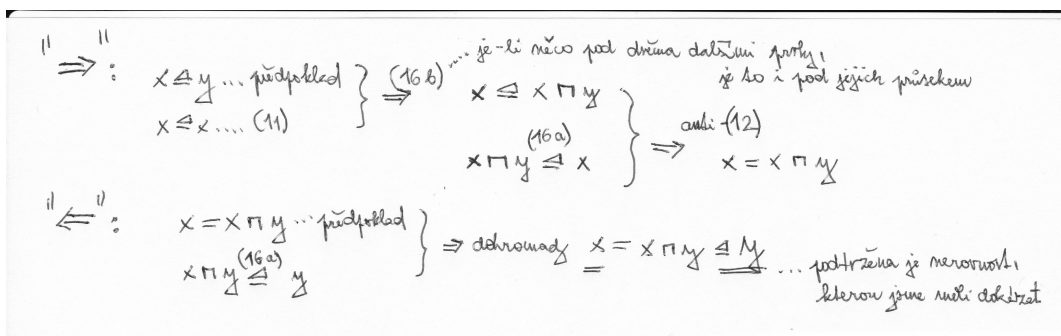 "⇒": x ⊴ y ... předpoklad } ⇒ (16b) .... je-li něco pod dvěma dalšími prvky,
je to i pod jejich průsekem
x ⊴ x .... (11) x ⊴ x ⊓ y
x ⊓ y (16a) ⊴ x } ⇒ anti-(12) x = x ⊓ y
"⇐": x = x ⊓ y ... předpoklad
x ⊓ y (16a) ⊴ y } ⇒ dohromady x = x ⊓ y ⊴ y ... podtržena je nerovnost,
kterou jsme měli dokázat